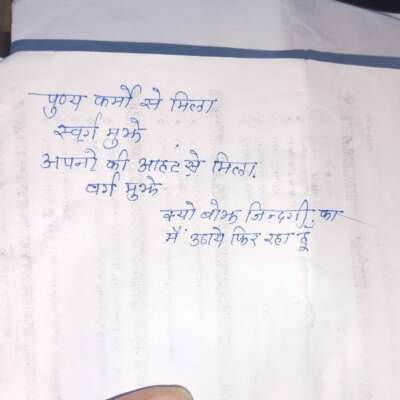 पुण्य कर्मो से मिला
स्वर्ग मुझे
अपनो की आहट से मिला
वर्ग मुझे
क्यो बोझ जिन्दगी का
मैं उठाये फिर रहा हूँ